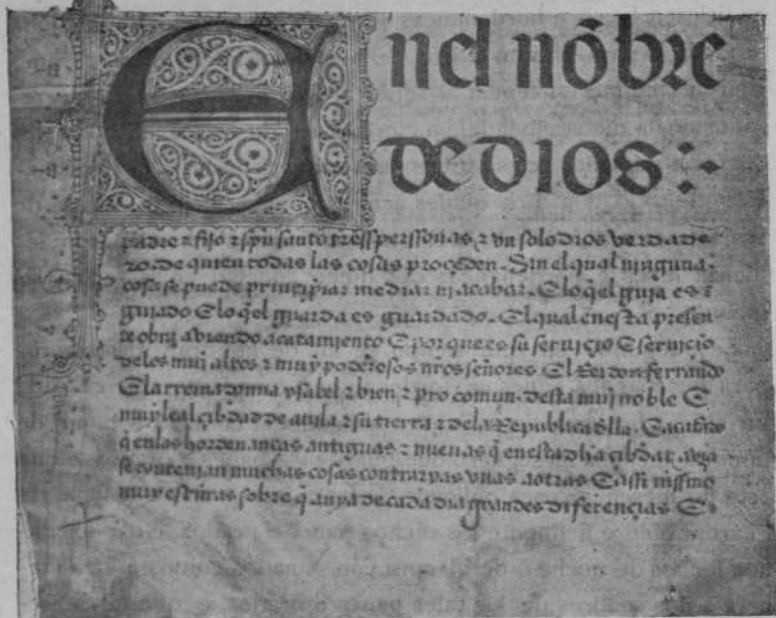 En el nõbre
de dios :-
padre ⁊ fijo ⁊ spũ santo tress perssonas, ⁊ vn solo dios verdade
ro, de quien todas las cosas proçeden. Sin el qual ninguna
cosa se puede prinçipiar mediar ni acabar. E lo q̃ el guia es
guiado E lo q̃ el guarda es guardado. El qual en esta presen
te obra aviendo acatamiento E por que es su seruiçio E seruiçio
de los muy altos ⁊ muy poderosos nr̃os señores. El Rei don fernando
E la reina donna ysabel ⁊ bien ⁊ pro comun. desta muy noble E
muy leal çibdad de auila ⁊ su tierra ⁊ de la Republica della.
q̃ en las hordenanças antiguas ⁊ nueuas q̃ en esta dh̃a çibdat avia
se contenian muchas cosas contrarias vnas a otras E assi missmo
muy sobre q̃ auya de cada dia grandes diferençias E